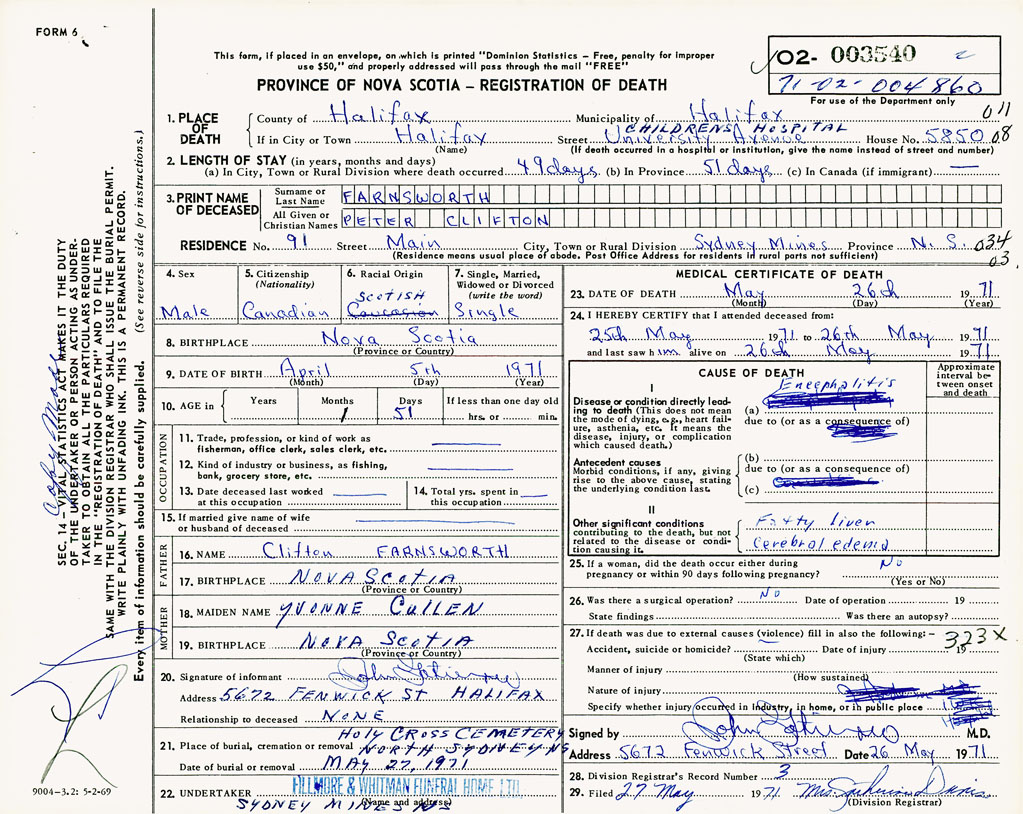 FORM 6
This form, if placed in an envelope, on which is printed "Dominion Statistics — Free, penalty for improper
use $50," and properly addressed will pass through the mail "FREE"
PROVINCE OF NOVA SCOTIA — REGISTRATION OF DEATH
02- 003540 2
71-02-004860
For use of the Department only
011
1. PLACE OF DEATH
County of Halifax Municipality of Halifax
CHILDRENS HOSPITAL
If in City or Town Halifax Street University Avenue House No. 5850 08
(Name) (If death occurred in a hospital or institution, give the name instead of street and number)
2. LENGTH OF STAY (in years, months and days)
(a) In City, Town or Rural Division where death occurred 49 days (b) In Province 51 days (c) In Canada (if immigrant) —
3. PRINT NAME OF DECEASED
Surname or Last Name FARNSWORTH
All Given or Christian Names PETER CLIFTON
RESIDENCE No. 91 Street Main City, Town or Rural Division Sydney Mines Province N. S. 034
(Residence means usual place of abode. Post Office Address for residents in rural parts not sufficient) 03
4. Sex
Male
5. Citizenship
(Nationality)
Canadian
6. Racial Origin
SCOTISH
Caucasion
7. Single, Married,
Widowed or Divorced
(write the word)
Single
8. BIRTHPLACE Nova Scotia
(Province or Country)
9. DATE OF BIRTH April 5th 1971
(Month) (Day) (Year)
10. AGE in Years Months Days If less than one day old
1 51 hrs. or min.
OCCUPATION
11. Trade, profession, or kind of work as
fisherman, office clerk, sales clerk, etc.
12. Kind of industry or business, as fishing,
bank, grocery store, etc.
13. Date deceased last worked
at this occupation
14. Total yrs. spent in
this occupation
15. If married give name of wife
or husband of deceased
FATHER
16. NAME Clifton FARNSWORTH
17. BIRTHPLACE NOVA SCOTIA
(Province or Country)
MOTHER
18. MAIDEN NAME YVONNE CULLEN
19. BIRTHPLACE NOVA SCOTIA
(Province or Country)
20. Signature of informant
Address 5672 FENWICK ST HALIFAX
Relationship to deceased NONE
HOLY CROSS CEMETERY
21. Place of burial, cremation or removal NORTH SYDNEY NS
Date of burial or removal MAY 27, 1971
22. UNDERTAKER FILLMORE & WHITMAN FUNERAL HOME LTD.
(Name and address)
SYDNEY MINES NS
9004-3.2: 5-2-69
MEDICAL CERTIFICATE OF DEATH
23. DATE OF DEATH May 26th 1971
(Month) (Day) (Year)
24. I HEREBY CERTIFY that I attended deceased from:
25th May 1971 to 26th May 1971
and last saw him alive on 26th May 1971
CAUSE OF DEATH
Approximate
interval be-
tween onset
and death
I
Disease or condition directly lead-
ing to death (This does not mean
the mode of dying, e.g., heart fail-
ure, asthenia, etc. It means the
disease, injury, or complication
which caused death.)
Encephalitis
(a)
due to (or as a consequence of)
Antecedent causes
Morbid conditions, if any, giving
rise to the above cause, stating
the underlying condition last.
(b)
due to (or as a consequence of)
(c)
II
Other significant conditions
contributing to the death, but not
related to the disease or condi-
tion causing it.
Fatty liver
Cerebral edema
25. If a woman, did the death occur either during
pregnancy or within 90 days following pregnancy? No
(Yes or No)
26. Was there a surgical operation? No Date of operation 19
State findings Was there an autopsy?
27. If death was due to external causes (violence) fill in also the following:— 323X
Accident, suicide or homicide? Date of injury 19
(State which)
Manner of injury
(How sustained)
Nature of injury
Specify whether injury occurred in industry, in home, or in public place
Signed by M.D.
Address 5672 Fenwick Street Date 26 May 1971
28. Division Registrar's Record Number 3
29. Filed 27 May 1971 Mrs. Davis
(Division Registrar)
Copy Made
SEC. 14 — VITAL STATISTICS ACT MAKES IT THE DUTY
OF THE UNDERTAKER OR PERSON ACTING AS UNDER-
TAKER TO OBTAIN ALL THE PARTICULARS REQUIRED
IN THE "REGISTRATION OF DEATH" AND TO FILE THE
SAME WITH THE DIVISION REGISTRAR WHO SHALL ISSUE THE BURIAL PERMIT.
WRITE PLAINLY WITH UNFADING INK. THIS IS A PERMANENT RECORD.
Every item of information should be carefully supplied. (See reverse side for instructions.)